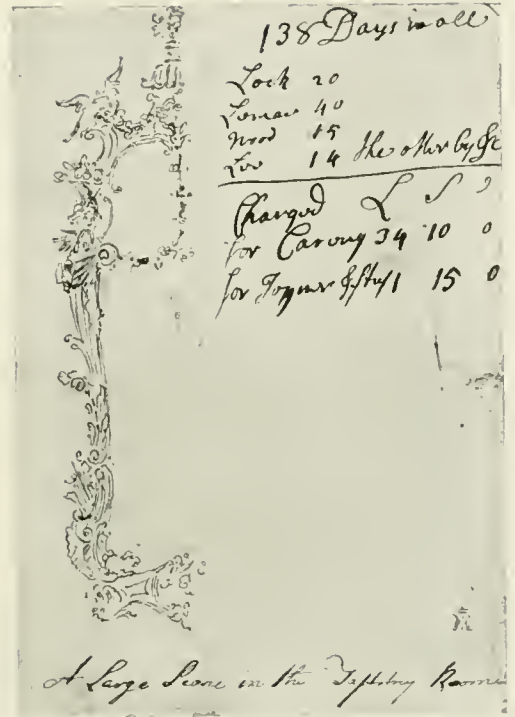 138 Days in all
Lock 20
Lomax 40
Wood 15
Loo 14 the other by
Charged L S D
for Carving 34 10 0
for Joyner & stuf 1 15 0
A Large Scone in the Tapistry Roome